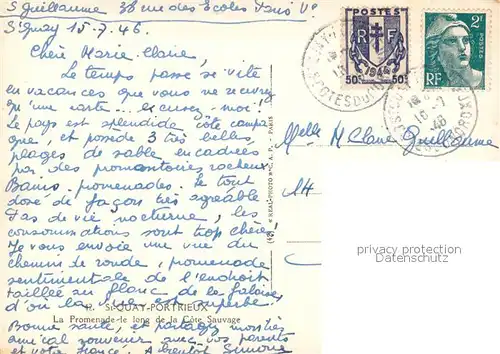 S. Guillaume 38 rue des Ecoles Paris Ve
St Quay 15-7-46.
Chère Marie Claire,
Le temps passe si vite
en vacances que vous ne recevrez
qu'une carte... excusez-moi!
Le pays est splendide côté campa
gne, et possède 3 très belles
plages de sable encadrées
par des promontoires rocheux
Bains - promenades. le tout
dosé de façon très agréable
Pas de vie nocturne, les
consommations sont trop chères
Je vous envoie une vue du
chemin de ronde, promenade
sentimentale de l'endroit
taillée au flanc de la falaise
d'où la vue est superbe.
12. St-QUAY-PORTRIEUX
La Promenade le long de la Côte Sauvage
Bonne santé, et partagez mon très
amical souvenir avec vos parents
et votre fiancé. A bientôt Simone
"REAL-PHOTO" C. A. P. - PARIS
POSTES
RF
1946
50c 50c
2F
POSTES
RF
COTES DU NORD
16-7
46
Melle M Claire Guillaume
14
privacy protection
Datenschutz